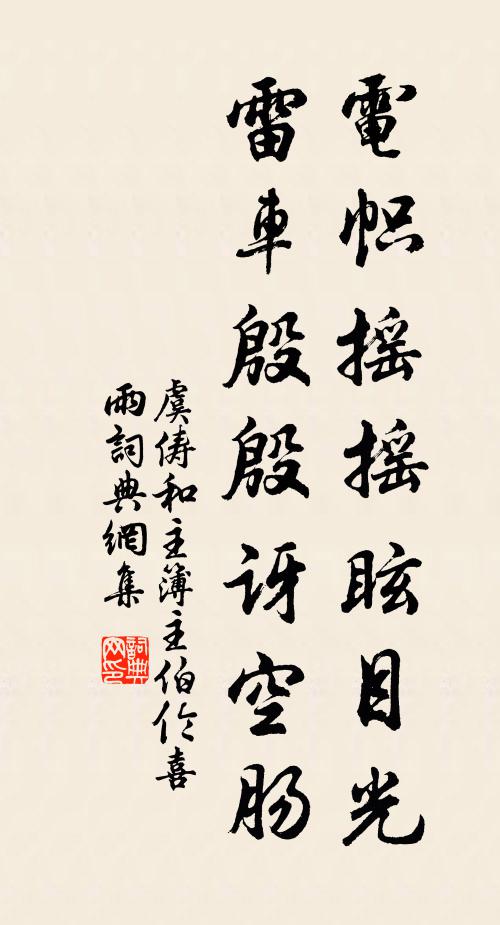 電帜摇摇眩目光
雷車殷殷讶空肠
虞儔和主簿主伯伫喜
雨詞典網集
詞典網印